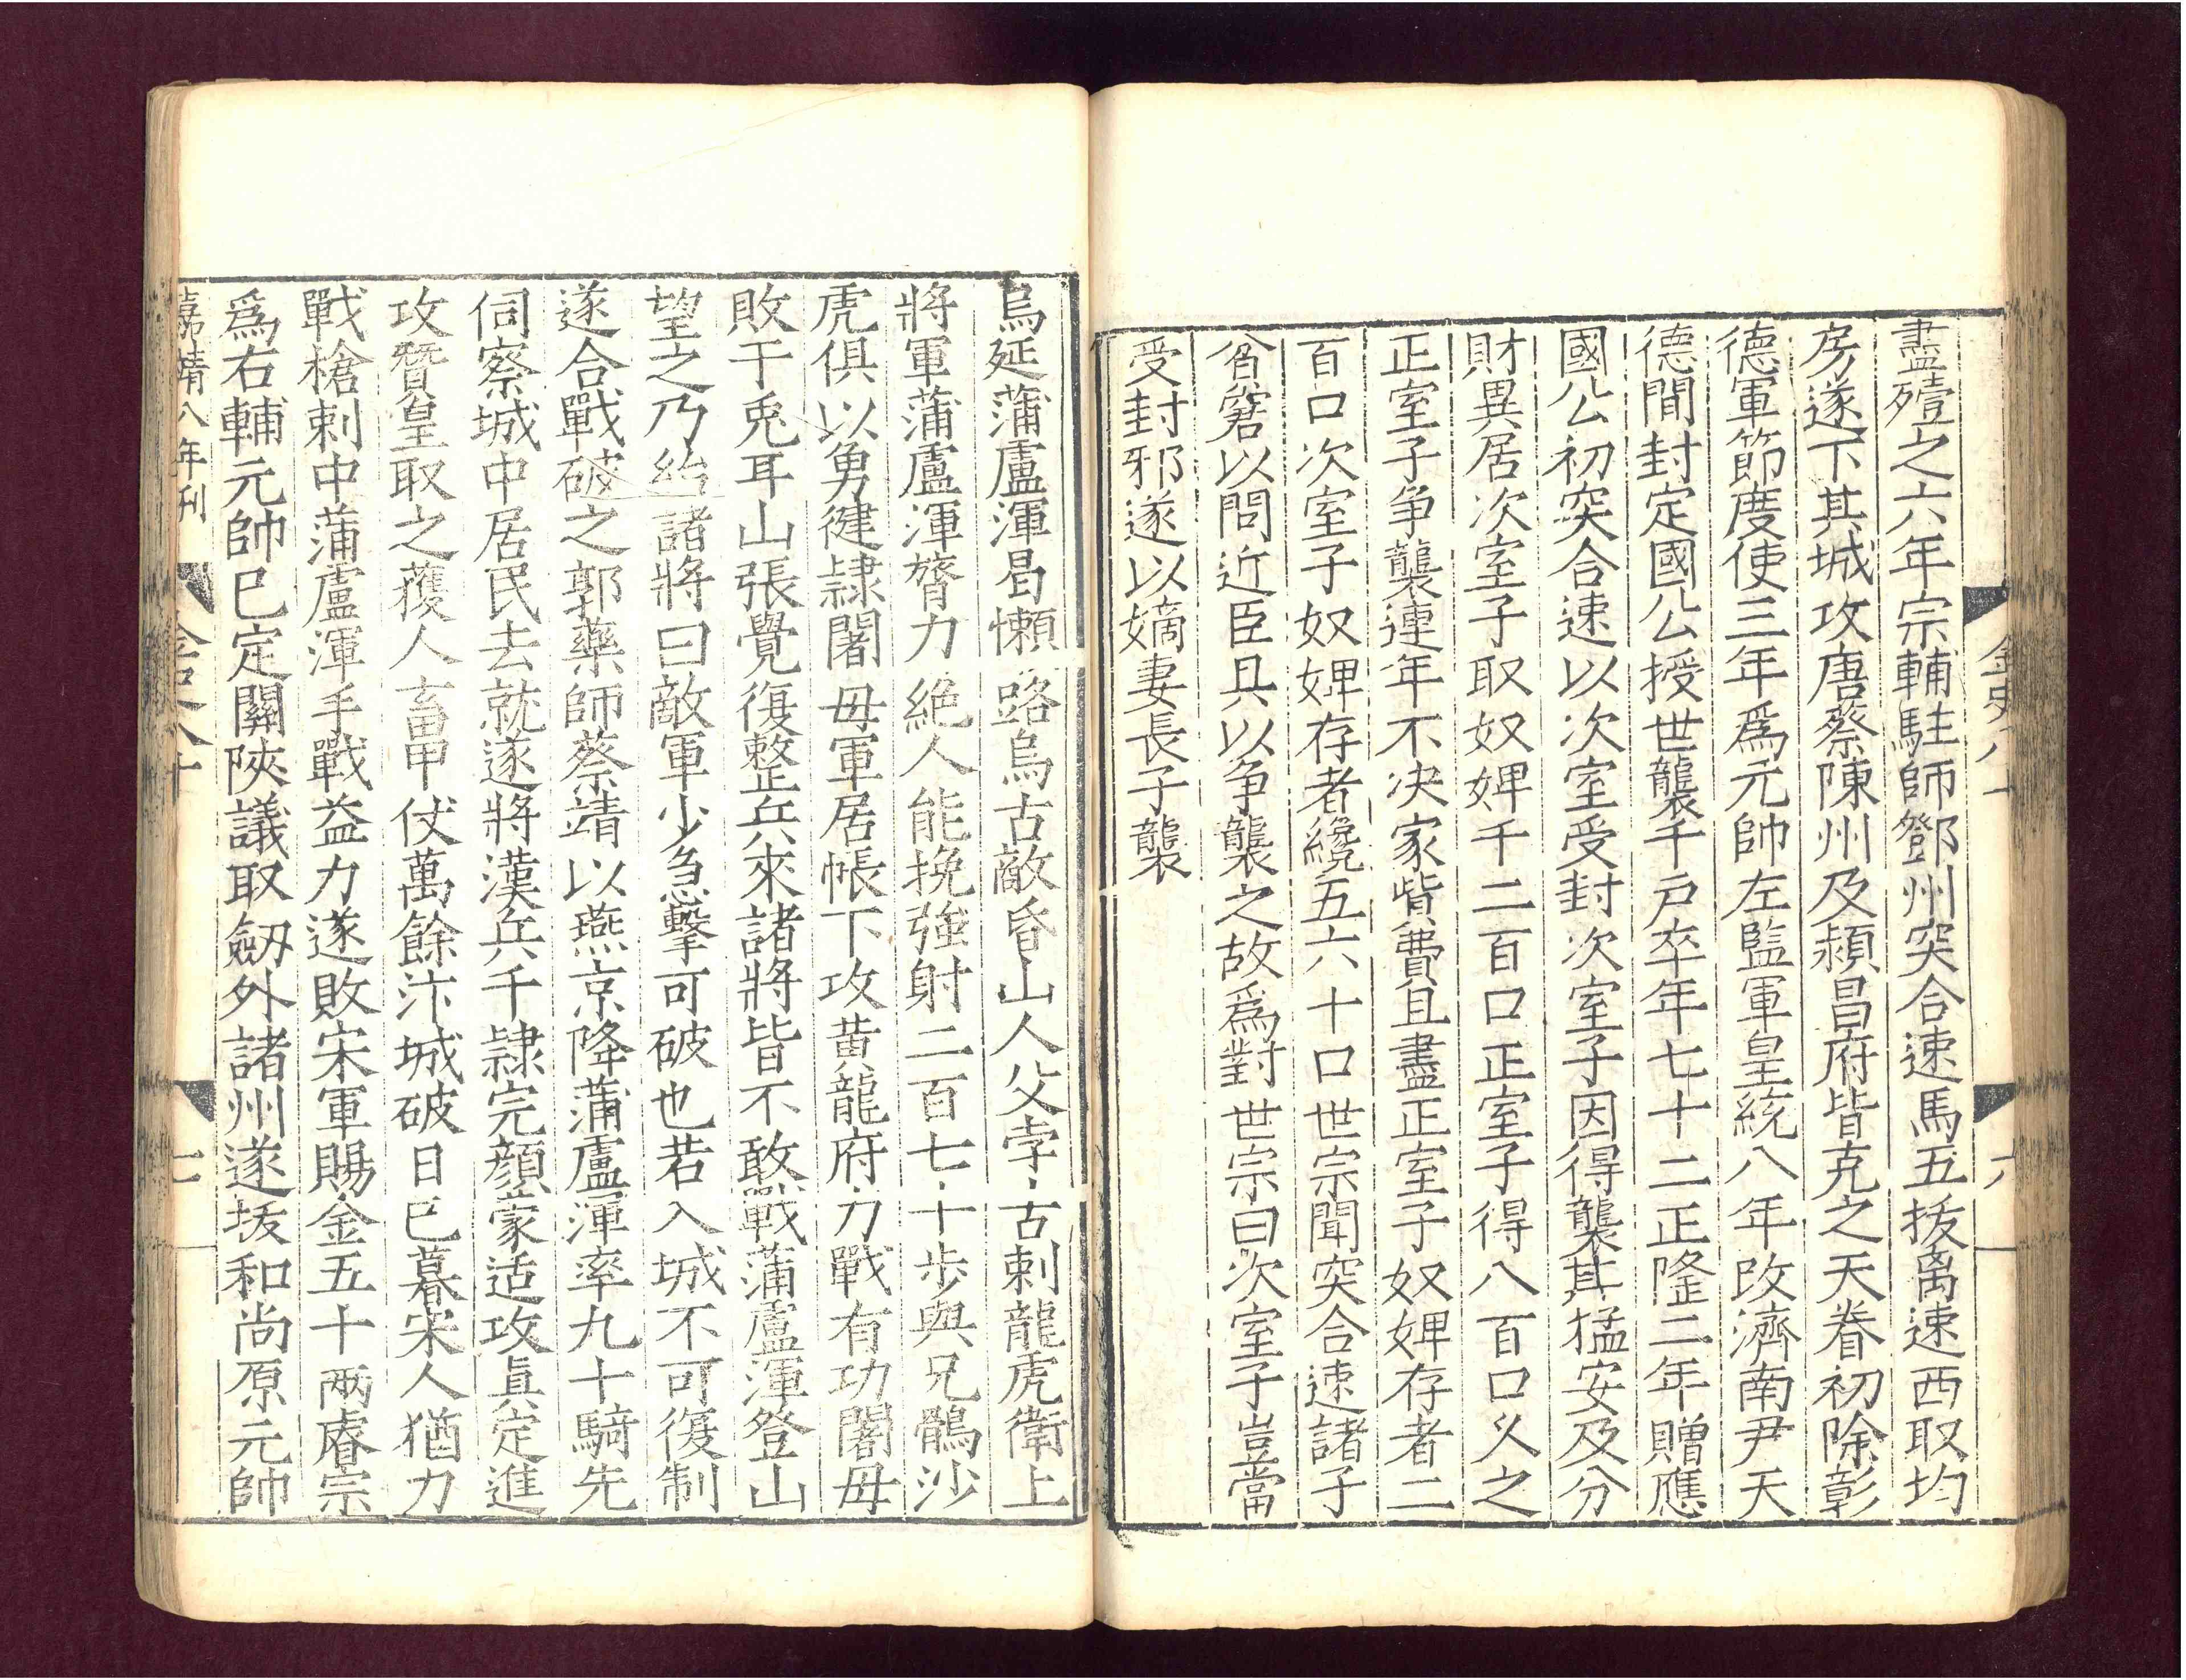 金史八十
六
盡殪之六年宗輔駐師鄧州突合速馬五拔离速西取均
房遂下其城攻唐蔡陳州及潁昌府皆克之天眷初除彰
德軍節度使三年爲元帥左監軍皇統八年改濟南尹天
德間封定國公授世襲千戶卒年七十二正隆二年贈應
國公初突合速以次室受封次室子因得襲其猛安及分
財異居次室子取奴婢千二百口正室子得八百口乆之
正室子争襲連年不决家貲費且盡正室子奴婢存者二
百口次室子奴婢存者纔五六十口世宗聞突合速諸子
貧窘以問近臣具以争襲之故爲對世宗曰次室子豈當
受封邪遂以嫡妻長子襲
烏延蒲盧渾曷懶路烏古敵昏山人父孛古剌龍虎衛上
將軍蒲盧渾膂力絶人能挽強射二百七十步與兄鶻沙
虎俱以勇健隷闍母軍居帳下攻黄龍府力戰有功闍母
敗于兎耳山張覺復整兵來諸將皆不敢戰蒲盧渾登山
望之乃紿諸將曰敵軍少急擊可破也若入城不可復制
遂合戰破之郭藥師蔡靖以燕京降蒲盧渾率九十騎先
伺察城中居民去就遂將漢兵千隷完顔蒙适攻眞定進
攻贊皇取之獲人畜甲仗萬餘汴城破日已暮宋人猶力
戰槍剌中蒲盧渾手戰益力遂敗宋軍賜金五十兩睿宗
爲右輔元帥已定關陜議取劒外諸州遂拔和尚原元帥
嘉靖八年刊
金史八十
七